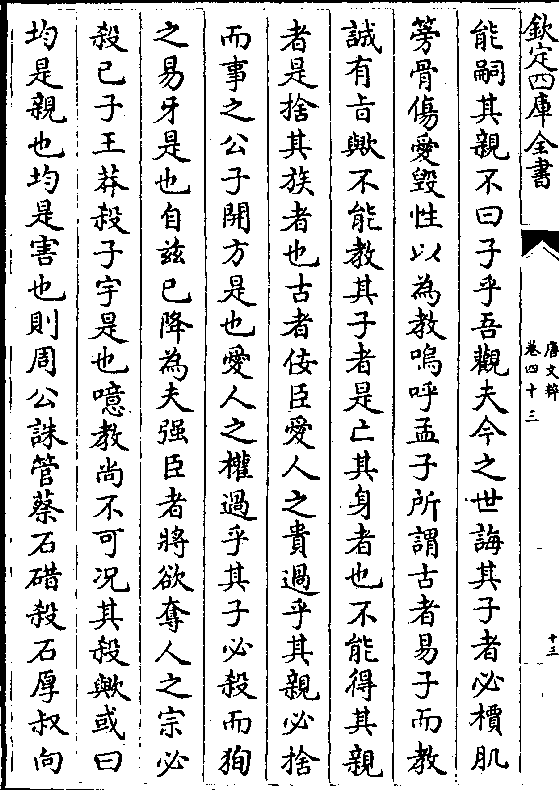 欽定四庫全書
唐文粹
卷四十三
十三
能嗣其親不曰子乎吾觀夫今之世誨其子者必檟肌
篣骨傷愛毀性以為教嗚呼孟子所謂古者易子而教
誠有㫖歟不能教其子者是亡其身者也不能得其親
者是捨其族者也古者佞臣愛人之貴過乎其親必捨
而事之公子開方是也愛人之權過乎其子必殺而狥
之易牙是也自兹已降為夫强臣者將欲奪人之宗必
殺已子王莽殺子宇是也噫教尚不可况其殺歟或曰
均是親也均是害也則周公誅管蔡石碏殺石厚叔向